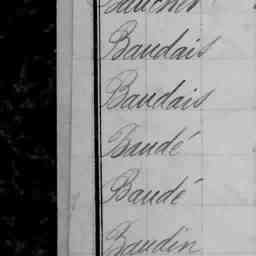 Baudais
Baudais
Baudé
Baudé
Baudin